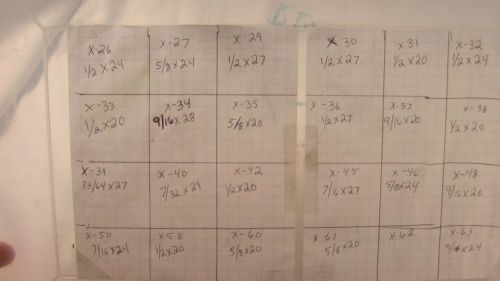 X-26 X-27 X-29 X 30 X31 X-32
1/2 x 24 5/8 x 24 1/2 x 27 1/2 x 27 1/2 x 20 1/2 x 24
X-33 X-34 X-35 X-36 X-37 X-38
1/2 x 20 9/16 x 28 5/8 x 20 1/2 x 27 9/16 x 20 1/2 x 20
X-39 X-40 X-42 X-45 X-46 X-48
33/64 x 27 7/32 x 24 1/2 x 20 7/16 x 27 5/8 x 24 9/16 x 20
X-50 X-58 X-60 X-61 X-62 X-63
7/16 x 24 1/2 x 20 5/8 x 20 5/8 x 20 9/16 x 24